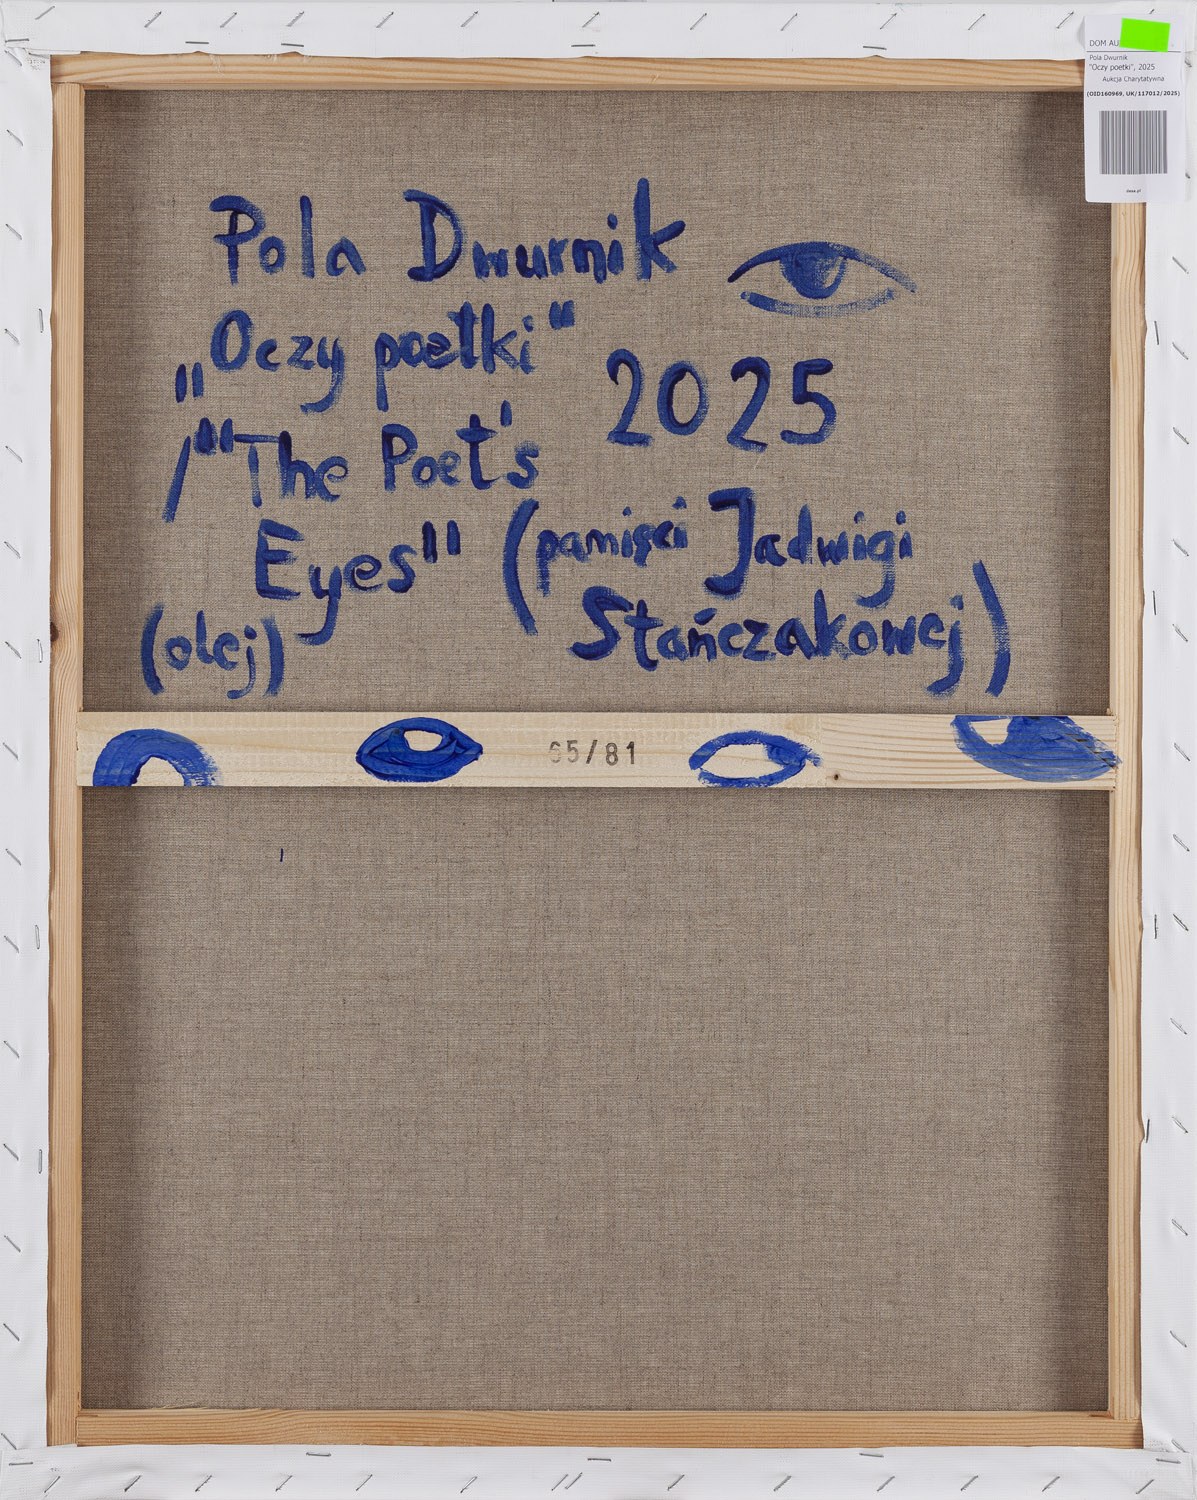 Pola Dwurnik
„Oczy poetki"
2025
/"The Poet's
Eyes" (pamięci Jadwigi
Stańczakowej)
(olej)
65/81
DOM AU
Pola Dwurnik
"Oczy poetki", 2025
Aukcja Charytatywna
(OID160969, UK/117012/2025)
desa.pl